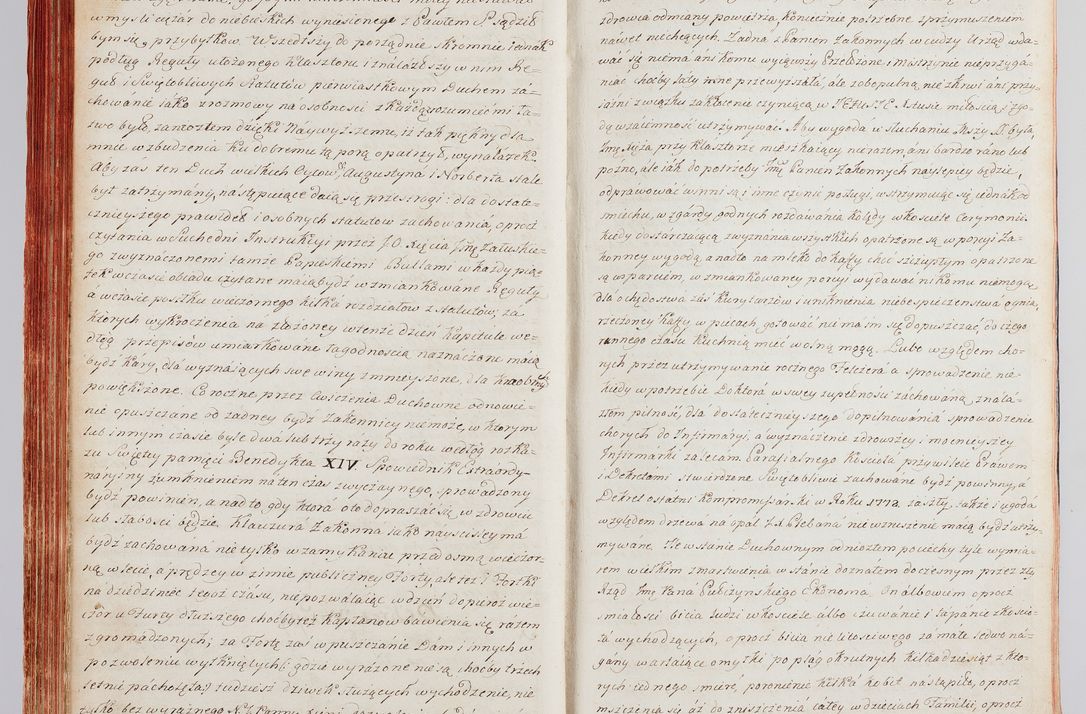 w mysli ciężar do niebieskich wyniesionego z Pawłem S. sądził
bym się, przybytkow. Wszedłszy do porządnie skromnie iednak
podług Reguły ułożonego Klasztoru i znalazłszy w nim Re=
guł i Swiętobliwych Statutow pierwiastkowym Duchem za=
chowanie iako z rozmowy na osobności z każdą rozumieć mi ła=
two było, zaniozłem dzięki Naywyższemu, iż tak piękny dla
mnie wzbudzenia ku dobremu tą porą opatrzył, wynalazek.
Aby zaś ten Duch wielkich Oycow SS. Augustyna i Norberta stale
był zatrzymany, następuiące daią się przestrogi: dla dostate=
cznieyszego prawideł i osobnych statutow zachowania, oprocz
czytania w Suchedni Instrukcyi przez J. O. Xięcia Jmę Załuskie=
go z wyznaczonemi tamże Papieskiemi Bullami w każdy pią=
tek w czasie obiadu czytane maią bydź wzmiankowane Reguły
á w czasie posiłku wieczornego kilka rozdziałow z statutow, za
ktorych wykroczenia na złożoney w tenże dzień kapitule we=
dług przepisow umiarkowane łagodnością naznaczone maią
bydź kary, dla wyznaiących swe winy zmnieyszone, dla krnobrnych
powiększone. Coroczne przez cwiczenia Duchowne odnowie=
nie opuszczane od żadney bydź Zakonnicy nie może, w ktorym
lub innym czasie byle dwa lub trzy razy do roku według rozka=
zu Swiętey pamięci Benedykta XIV Spowiednik Extraordy=
naryiny z umknieniem na ten czas zwyczaynego, sprowadzony
bydź powinien, a nadto, gdy ktora oto dopraszać się w zdrowiu
lub słabości będzie. Klauzura Zakonna iako nayscisley ma
bydź zachowana nie tylko w zamykaniu przed osmą wieczor=
ną w lecie, a prędzey w zimie publiczney Forty, ale też i Fortki
na dziedziniec tegoż czasu, niepozwalaiąc w dzień dopieroż wie=
czor u Furty dłuższego choćby też Kapłanow bawienia się razem
zgromadzonych; za Fortę zaś wpuszczanie Dam i innych w
pozwoleniu wytkniętych (: gdzie wyrażone nie są, choćby trzech
letnie pacholęta:) tudzież dziwek służących wychodzenie, nie
zdrowia odmiany powietrza, koniecznie potrzebne z przymuszeniem
nawet niechcących. Żadna z Panien Zakonnych w cudzy Urząd wda=
wać się niema áni komu wyiąwszy Przełożone i mistrzynie nieprzyga=
niać choćby laty inne przewyższała, ále zobopolną nic zkrwi áni przy=
iaźni związku zakłócenie czyniącą w JEZUSIE Xtusie miłością i zgo=
dy wzaiemność utrzymywać. Aby wygoda w słuchaniu Mszy S. była
Jmę Xięża przy klasztorze mieszkaiący nierazem, áni bardzo ráno lub
pozno, ale iák do potrzeby Jmę Panien Zakonnych naylepiey będzie,
odprawować winni są i inne czynić posługi, wstrzymuiąc się iednak od
smiechu, wzgárdy godnych rozdawania kolędy w Kościele Ceremonii.
kiedy dostarczaiącą z wyznania wszystkich opatrzone są w porcyi Za=
konney wygodą, a nadto na mleko do kaffy choć szczupłym opatrzone
są wsparciem, wzmiankowaney porcyi wydawać nikomu niemogą,
dla ochędostwa záś klawzurow i uniknienia niebespieczeństwa ognia,
rzeczoney kaffy w piecach gotować nie maią się dopuszczać, do czego
rannego czasu kuchnią mieć wolną mogą. Lubo względem cho=
rych przez utrzymywanie rocznego Felczera a sprowadzenie nie
kiedy w potrzebie Doktora w swey zupełności záchowaną, znala=
złem pilność, dla dostateczniyszego dopilnowánia sprowadzenie
chorych do Infirmaryi, a wyznaczenie zdrowszey i mocnieyszey
Infirmarki zalecam. Parafialnego Kościoła przywileie Prawem
i Dekretami stwierdzone Swiętobliwie zachowane bydź powinny, a
Dekret ostatni kompromisarski w Roku 1773. zaszły, także i ugoda
względem drzewa na opał z X. Plebana niewzruszenie maią bydź utrzy=
mywane. Ile w stanie Duchownym odniozłem pociechy tyle wymia=
rem wielkim zmartwienia w stanie doznałem doczesnym przez zły
Rząd Jmę Pana Pełczynskiego Ekonoma. On álbowiem oprocz
smiałości bicia ludzi w Kościele álbo czuwánie i łapanie z kościo=
ła wychodzących, oprocz bicia nielitosciwego za małe ledwo na=
gány warłaiące omyłki po plag okrutnych kilkadziesiąt z kto=
rych iednego smierć, poronienie kilká kobit nastąpiło, oprocz
mszczenia się áż do zniszczenia całey w dzieciach Familii, oprocz